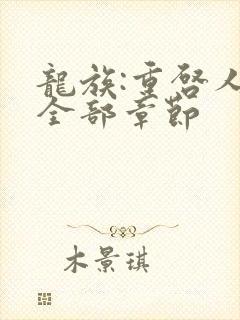 龍族:重啓人
全部章節
木景琪